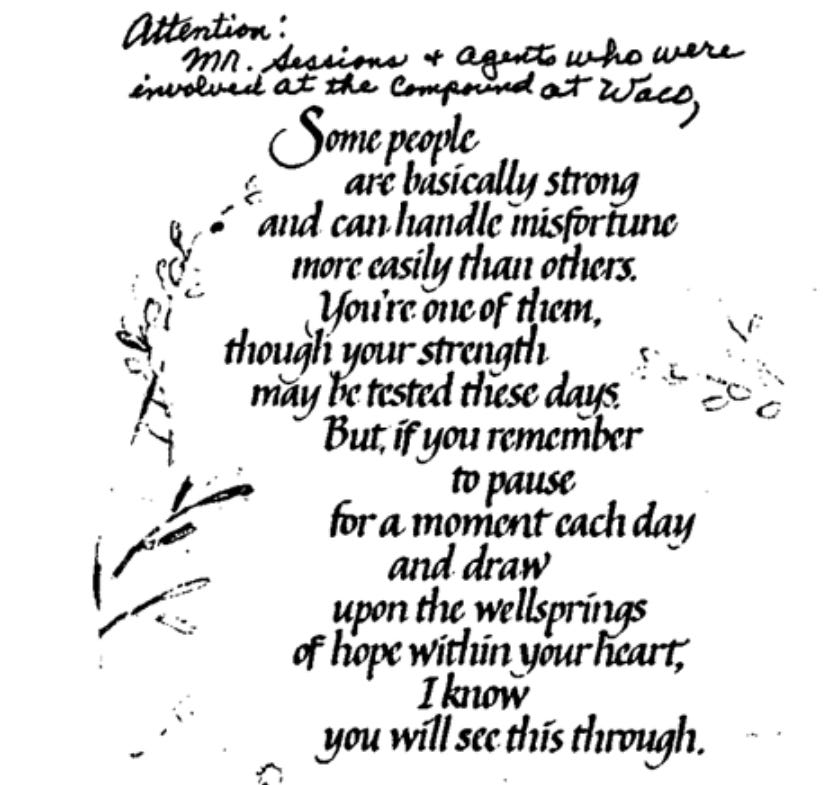 Attention:
Mr. Sessions + agents who were
involved at the Compound at Waco,
Some people
are basically strong
and can handle misfortune
more easily than others.
You're one of them,
though your strength
may be tested these days.
But, if you remember
to pause
for a moment each day
and draw
upon the wellsprings
of hope within your heart,
I know
you will see this through.